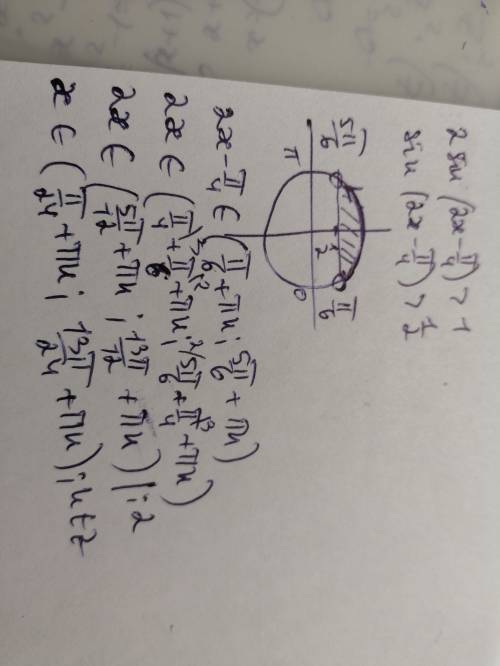 2 sin (2x - π/4) > 1
sin (2x - π/4) > 1/2
5π/6
π/6
π
0
1/2
2x - π/4 ∈ (π/6 + πn; 5π/6 + πn)
2x ∈ (π/4 + π/6 + πn; 5π/6 + π/4 + πn)
2x ∈ (5π/12 + πn; 13π/12 + πn) |:2
x ∈ (π/24 + πn; 13π/24 + πn); n ∈ Z